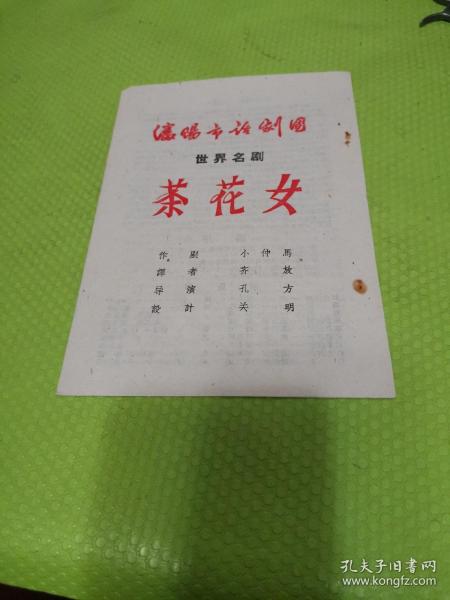 瀋陽市话劇団
世界名剧
茶花女
作剧 小仲馬
譯者 齐放
导演 孔方
設計 关明
孔夫子旧书网
www.kongfz.com